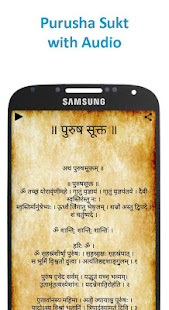 Purusha Sukt
with Audio
SAMSUNG
॥ पुरुष सूक्त ॥
अथ पुरुषसूक्तम् ॥
॥ पुरुषसूक्त ॥
ॐ तच्छं योरावृणीमहे । गातुं यज्ञाय । गातुं यज्ञपतये । दैवी
स्वस्तिरस्तु नः । स्वस्तिर्मानुषेभ्यः । ऊर्ध्वं जिगातु भेषजम् । शन्नो अस्तु द्विपदे
शं चतुष्पदे ।
ॐ शान्तिः शान्तिः शान्तिः ।
हरिः ॐ ।
ॐ सहस्रशीर्षा पुरुषः । सहस्राक्षः सहस्रपात् ।
स भूमिं विश्वतो वृत्वा । अत्यतिष्ठद्दशाङ्गुलम् ।
पुरुष एवेदं सर्वम् । यद्भूतं यच्च भव्यम् ।
उतामृतत्वस्येशानः । यदन्नेनातिरोहति ।
एतावानस्य महिमा । अतो ज्यायांश्च पूरुषः ।